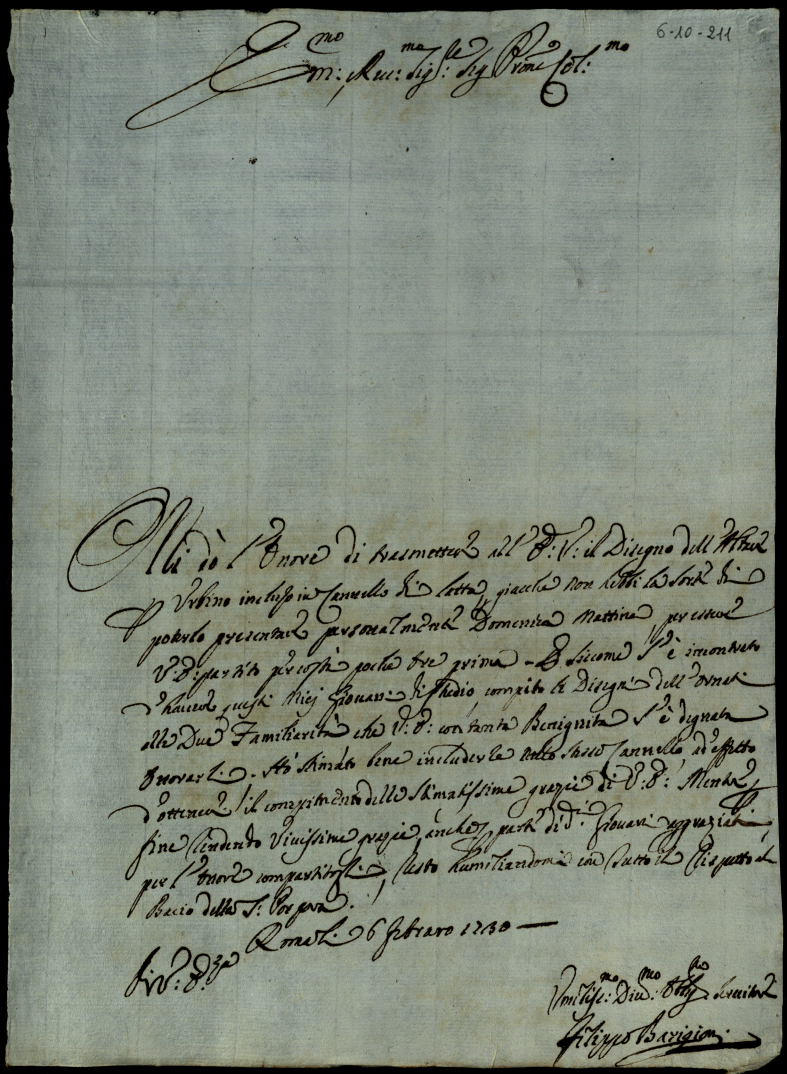 6-10-211
Em:mo Rev:mo Sig:re Sig Prone Col:mo
Mi dò l'onore di trasmettere all' E: V: il Disegno dell'Altare
P Urbino incluso in Cannello di Latta, giacche non hebbi la sorte di
poterlo presentare personalmente Domenica Mattina, per essere
V: E: partito per costì poche ore prima - E siccome s'è incontrato
d'havere questi Miei Giovani di studio, compito li Disegni dell'Ornati
alle Due Familiarità che V: E: con tanta Benignità s'è degnata
onorarli - Hò stimato bene includerle nello stesso Cannello, ad effetto
d'ottenere il compimento delle stimatissime grazie di V: E: Mentre P
fine rendendo Vivissime grazie, anche P parte di d:i Giovani aggraziati
per l'onore compartitoli, resto humiliandomi con tutto il rispetto al
Bacio della S: Porpora.
Roma li 6 febraro 1730
Di V: E:za
Umilis:mo Div:mo Oblig:mo Servitore
Filippo Barigioni